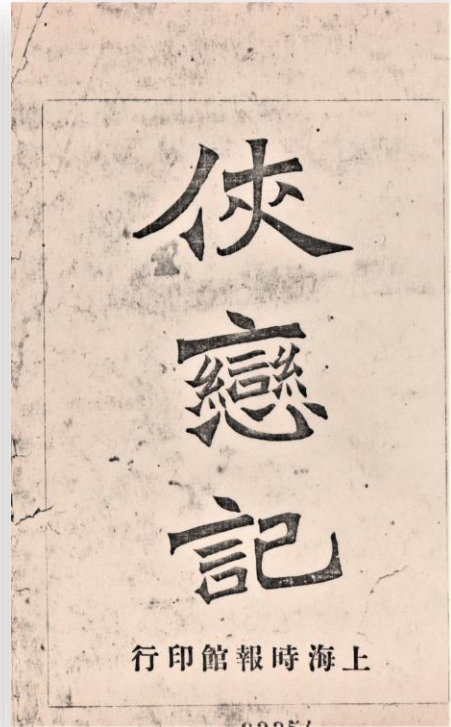 俠戀記
上海時報館印行